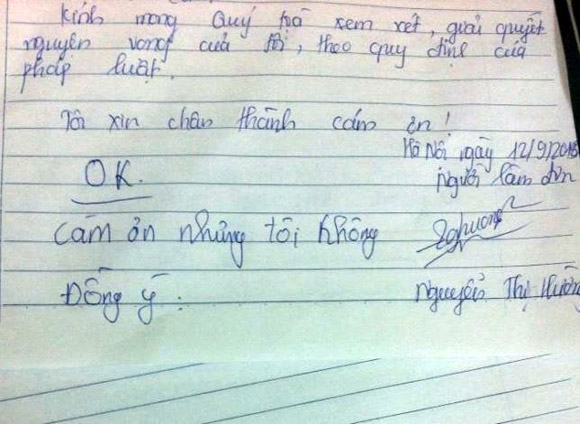 kính mong Quý toà xem xét, giải quyết
nguyện vong của tôi, theo quy định của
pháp luật.
Tôi xin chân thành cám ơn!
Hà Nội ngày 12/9/2018
OK.
Người làm đơn
Cảm ơn nhưng tôi không
Đồng ý.
Nguyễn Thị Hường